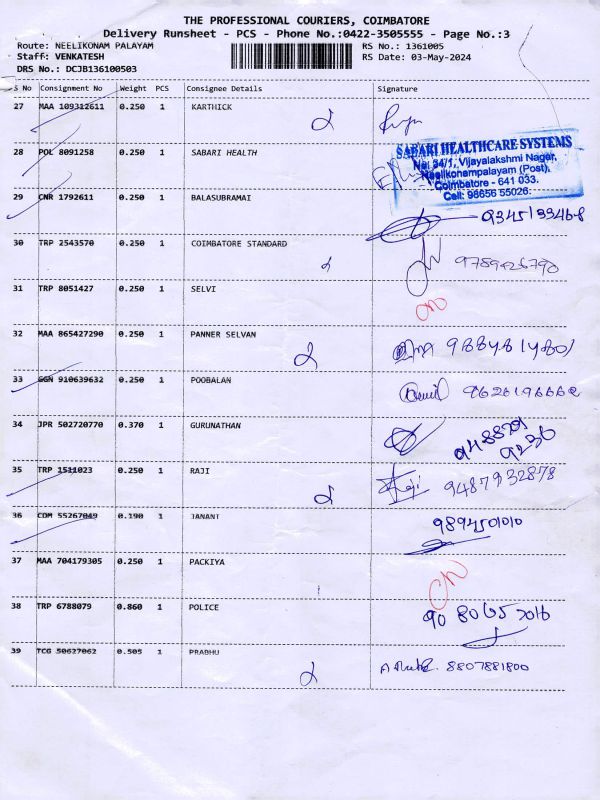 THE PROFESSIONAL COURIERS, COIMBATORE
Delivery Runsheet - PCS - Phone No.:0422-3505555 - Page No.:3
Route: NEELIKONAM PALAYAM RS No.: 1361005
Staff: VENKATESH RS Date: 03-May-2024
DRS No.: DCJB136100503
S No Consignment No Weight PCS Consignee Details Signature
27 MAA 109312611 0.250 1 KARTHICK
28 POL 8091258 0.250 1 SABARI HEALTH
SABARI HEALTHCARE SYSTEMS
No: 34/1, Vijayalakshmi Nagar,
Neelikonampalayam (Post),
Coimbatore - 641 033.
Cell: 98656 55026.
29 CNR 1792611 0.250 1 BALASUBRAMAI
9345133468
30 TRP 2543570 0.250 1 COIMBATORE STANDARD
9789426790
31 TRP 8051427 0.250 1 SELVI
32 MAA 865427290 0.250 1 PANNER SELVAN
33 GGN 910639632 0.250 1 POOBALAN
34 JPR 502720770 0.370 1 GURUNATHAN
35 TRP 1511023 0.250 1 RAJI
Raji 9487932878
36 COM 55267049 0.190 1 JANANT
9894501010
37 MAA 704179305 0.250 1 PACKIYA
38 TRP 6788079 0.860 1 POLICE
39 TCG 50627062 0.505 1 PRABHU
8807881800